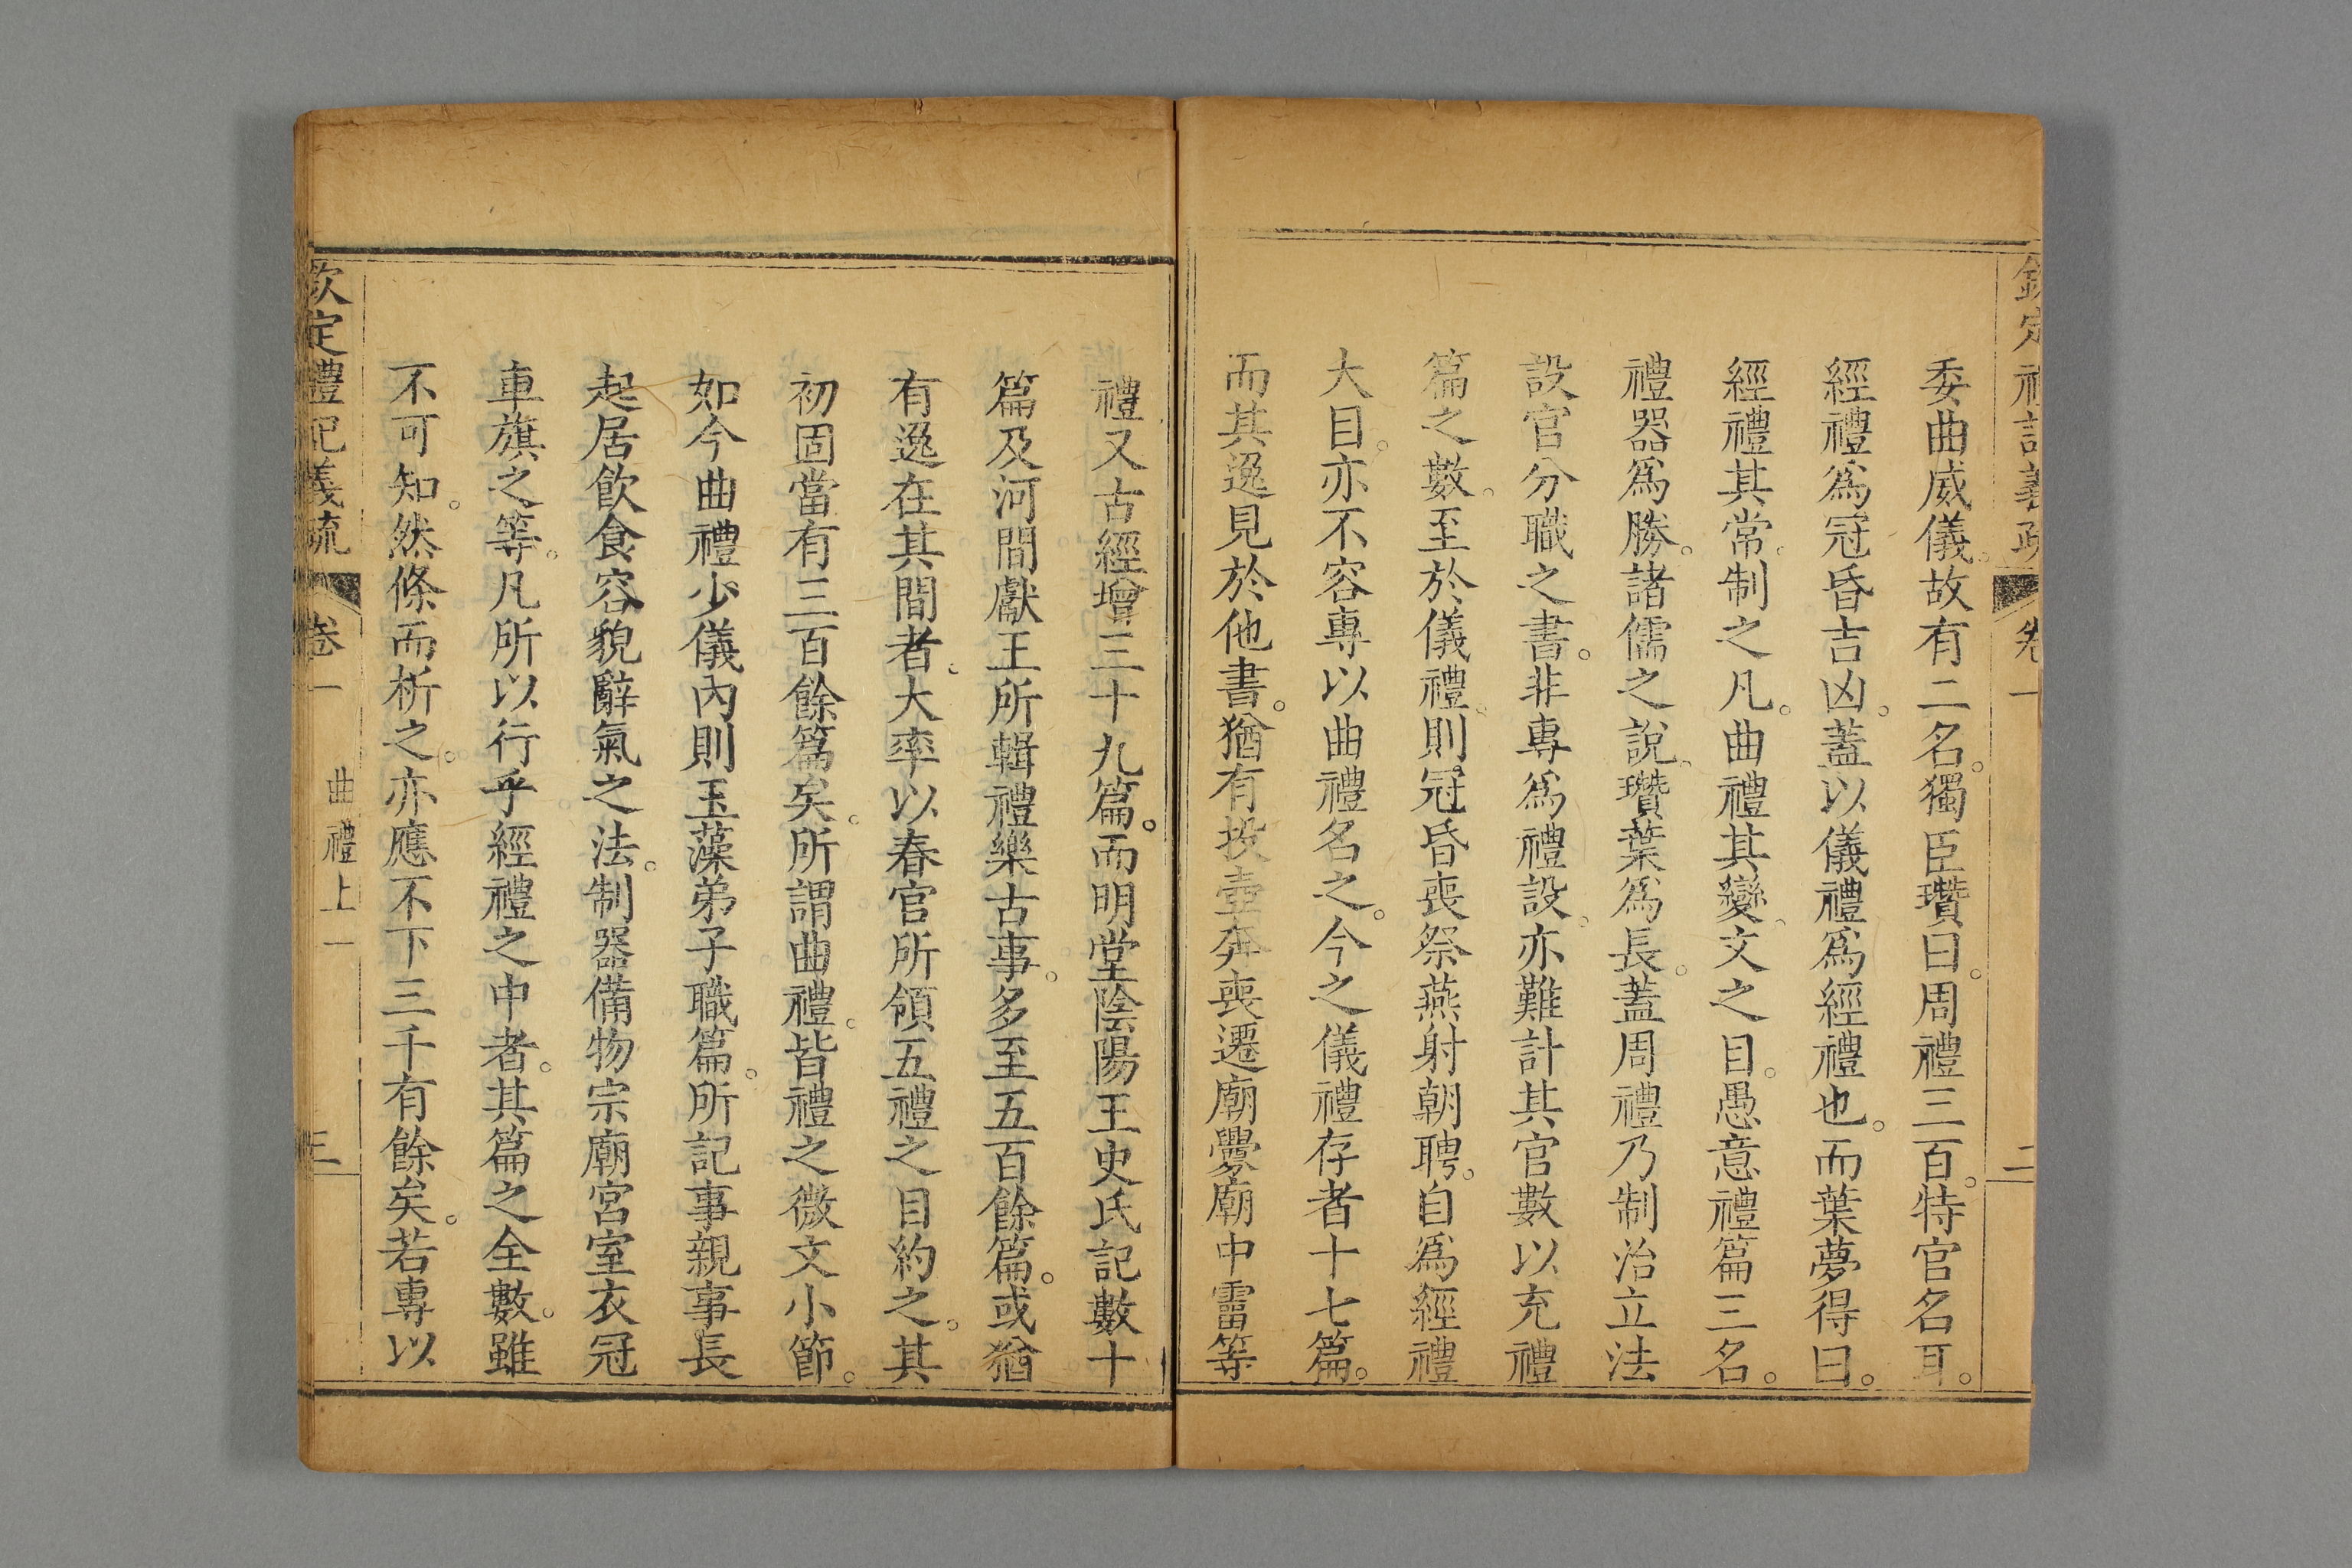 欽定禮記義疏 卷一 二
委曲威儀。故有二名。獨臣瓚曰。周禮三百。特官名耳。
經禮爲冠昏吉凶。蓋以儀禮爲經禮也。而葉夢得曰。
經禮其常。制之凡。曲禮其變。文之目。愚意禮篇三名。
禮器爲勝。諸儒之說。瓚葉爲長。蓋周禮乃制治立法
設官分職之書。非專爲禮設。亦難計其官數以充禮
篇之數。至於儀禮。則冠昏喪祭燕射朝聘。自爲經禮
大目。亦不容專以曲禮名之。今之儀禮存者十七篇。
而其逸見於他書。猶有投壺奔喪遷廟釁廟中霤等
禮又古經增三十九篇。而明堂陰陽王史氏記數十
篇及河間獻王所輯禮樂古事。多至五百餘篇。或猶
有逸在其間者。大率以春官所領五禮之目約之。其
初固當有三百餘篇矣。所謂曲禮。皆禮之微文小節。
如今曲禮少儀內則玉藻弟子職篇。所記事親事長
起居飲食容貌辭氣之法。制器備物宗廟宮室衣冠
車旗之等。凡所以行乎經禮之中者。其篇之全數。雖
不可知。然條而析之。亦應不下三千有餘矣。若專以
欽定禮記義疏 卷一 曲禮上一 三